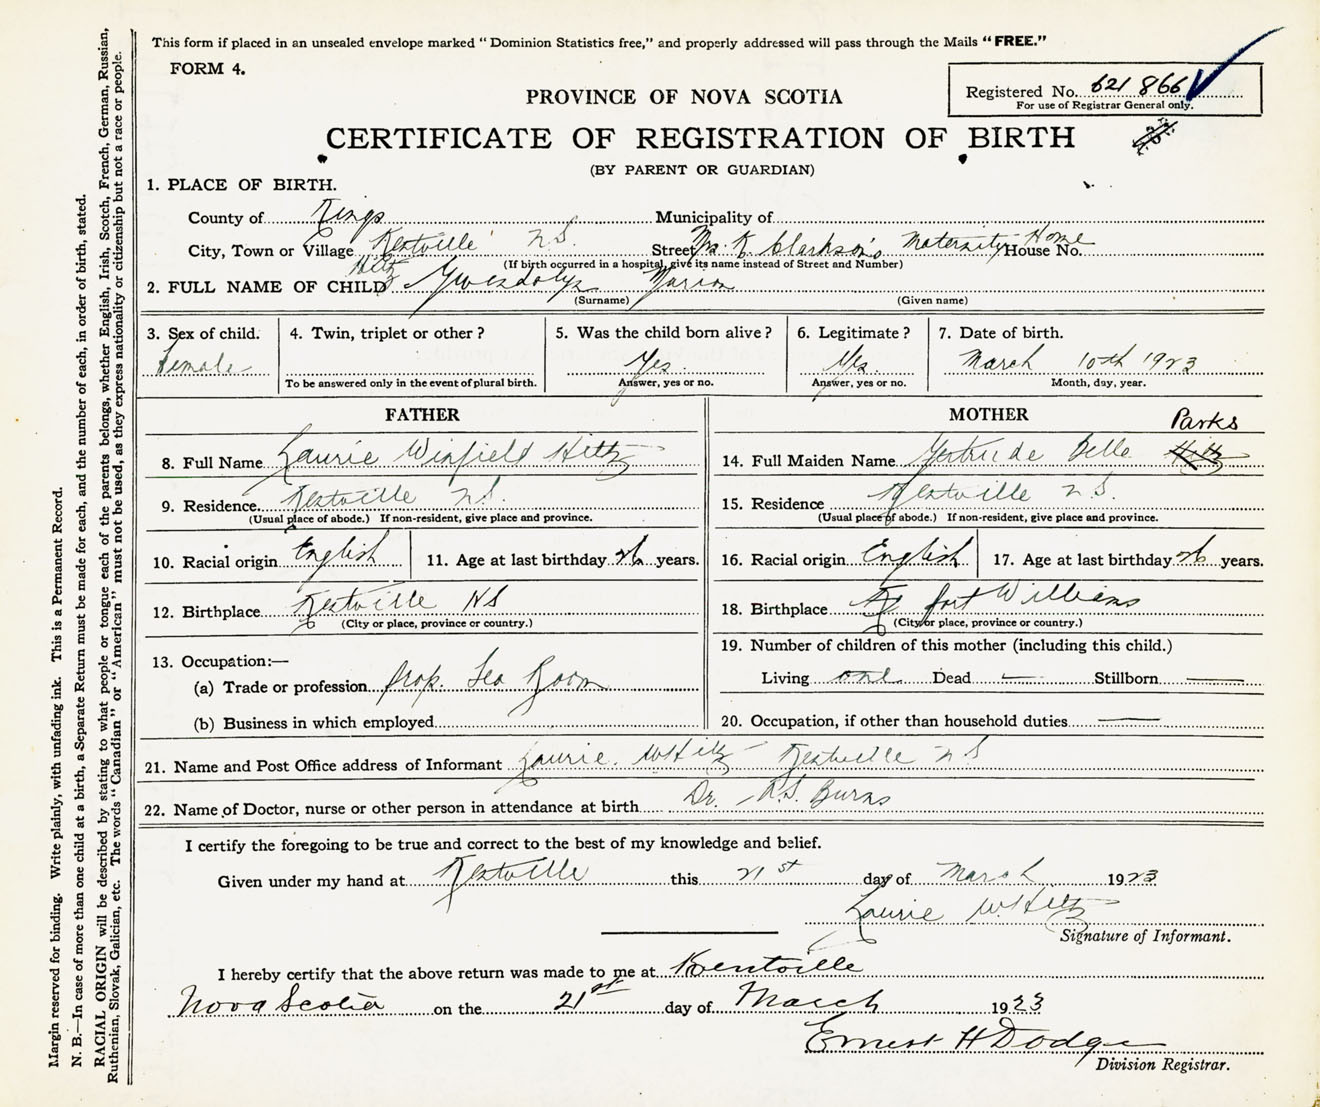 This form if placed in an unsealed envelope marked "Dominion Statistics free," and properly addressed will pass through the Mails "FREE."
FORM 4.
Registered No. 621 866
For use of Registrar General only.
PROVINCE OF NOVA SCOTIA
CERTIFICATE OF REGISTRATION OF BIRTH
(BY PARENT OR GUARDIAN)
1. PLACE OF BIRTH.
County of Kings Municipality of
City, Town or Village Kentville N.S. Street Mrs. K Clarkson's Maternity Home House No.
(If birth occurred in a hospital, give its name instead of Street and Number)
2. FULL NAME OF CHILD Hiltz Gwendolyn Marion
(Surname) (Given name)
3. Sex of child. 4. Twin, triplet or other? 5. Was the child born alive? 6. Legitimate? 7. Date of birth.
Female Yes. Yes. March 10th 1923
To be answered only in the event of plural birth. Answer, yes or no. Answer, yes or no. Month, day, year.
FATHER
8. Full Name Laurie Winfield Hiltz
9. Residence. Kentville N.S.
(Usual place of abode.) If non-resident, give place and province.
10. Racial origin English 11. Age at last birthday 26 years.
12. Birthplace Kentville NS
(City or place, province or country.)
13. Occupation:—
(a) Trade or profession Prop. Tea Room
(b) Business in which employed
MOTHER
Parks
14. Full Maiden Name Gertrude Belle Hiltz
15. Residence Kentville N.S.
(Usual place of abode.) If non-resident, give place and province.
16. Racial origin English 17. Age at last birthday 26 years.
18. Birthplace Port Williams
(City or place, province or country.)
19. Number of children of this mother (including this child.)
Living one Dead — Stillborn —
20. Occupation, if other than household duties —
21. Name and Post Office address of Informant Laurie W Hiltz - Kentville N.S
22. Name of Doctor, nurse or other person in attendance at birth Dr. R.S. Burns
I certify the foregoing to be true and correct to the best of my knowledge and belief.
Given under my hand at Kentville this 21st day of March 1923
Laurie W. Hiltz
Signature of Informant.
I hereby certify that the above return was made to me at Kentville
Nova Scotia on the 21st day of March 1923
Ernest H Dodge
Division Registrar.
Margin reserved for binding. Write plainly, with unfading ink. This is a Permanent Record.
N. B.—In case of more than one child at a birth, a Separate Return must be made for each, and the number of each, in order of birth, stated.
RACIAL ORIGIN will be described by stating to what people or tongue each of the parents belongs, whether English, Irish, Scotch, French, German, Russian,
Ruthenian, Slovak, Galician, etc. The words "Canadian" or "American" must not be used, as they express nationality or citizenship but not a race or people.